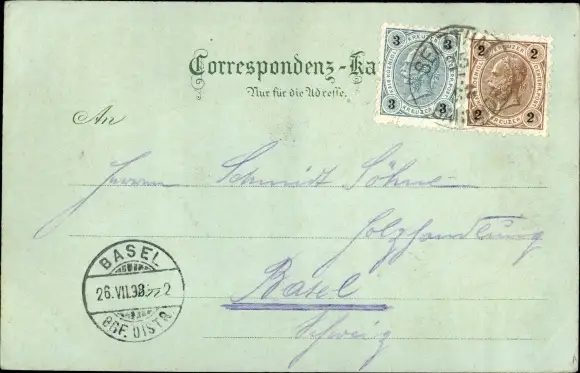 Correspondenz-Ka
Nur für die Adresse.
3 KREUZER 3
3 KREUZER 3
2 KREUZER 2
2 KREUZER 2
An
Herrn Schmidt Söhne
Holzhandlung
Basel
Schweiz
BASEL
26.VII.98
BRF. DISTR.